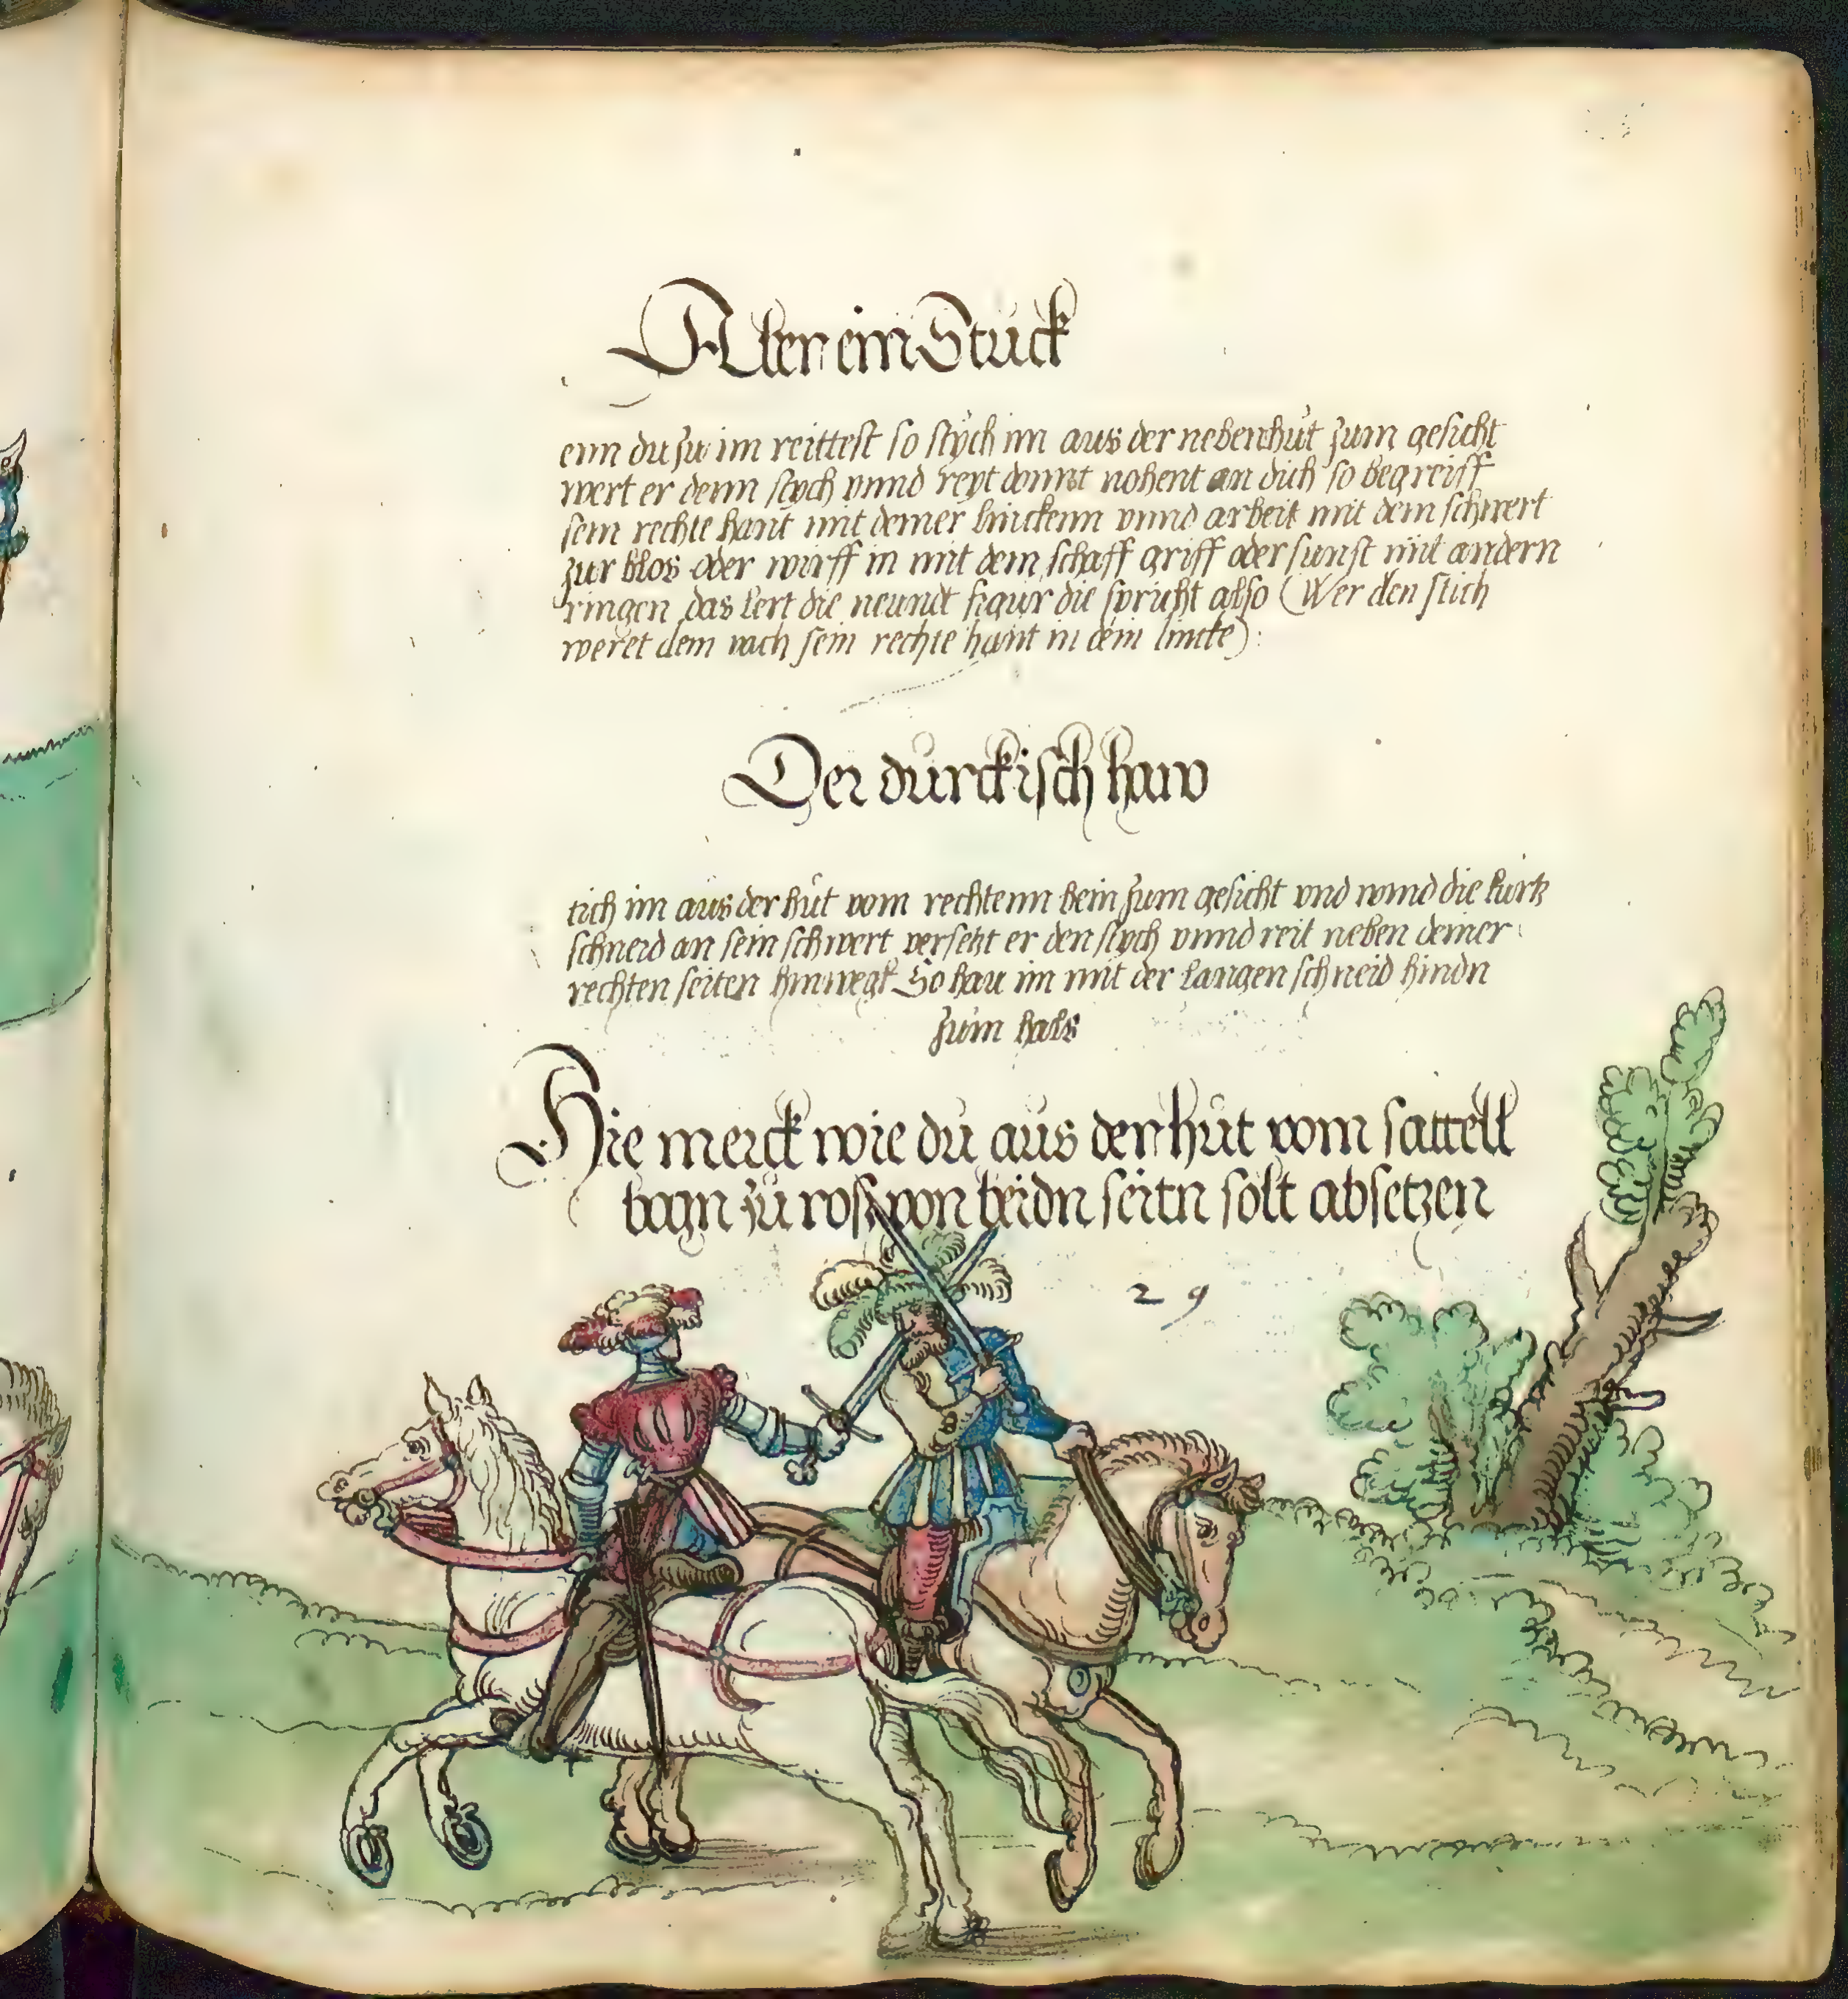 Aber ein Stuck
enn du zu im reittest so stych im aus der nebenhut zum gesicht
wert er denn stych vnnd reyt domit nohent an dich so begreiff
sein rechte hant mit deiner linckenn vnnd arbeit mit dem schwert
zur blos oder wurff in mit dem schaff griff oder sunst mit andern
ringen das lert die neundt figur die spricht also (Wer den stich
weret dem vach sein rechte hant in dein lincke):
Der durckisch haw
tich im aus der hut vom rechtenn bein zum gesicht vnd wind die kurtz
schneid an sein schwert versetzt er den stych vnnd reit neben deiner
rechten seiten hinwegk So hau im mit der langen schneid hindn
zum hals
Hie merck wie du aus der hut vom sattell
bogn zu ross von beidn seitn solt absetzen
29